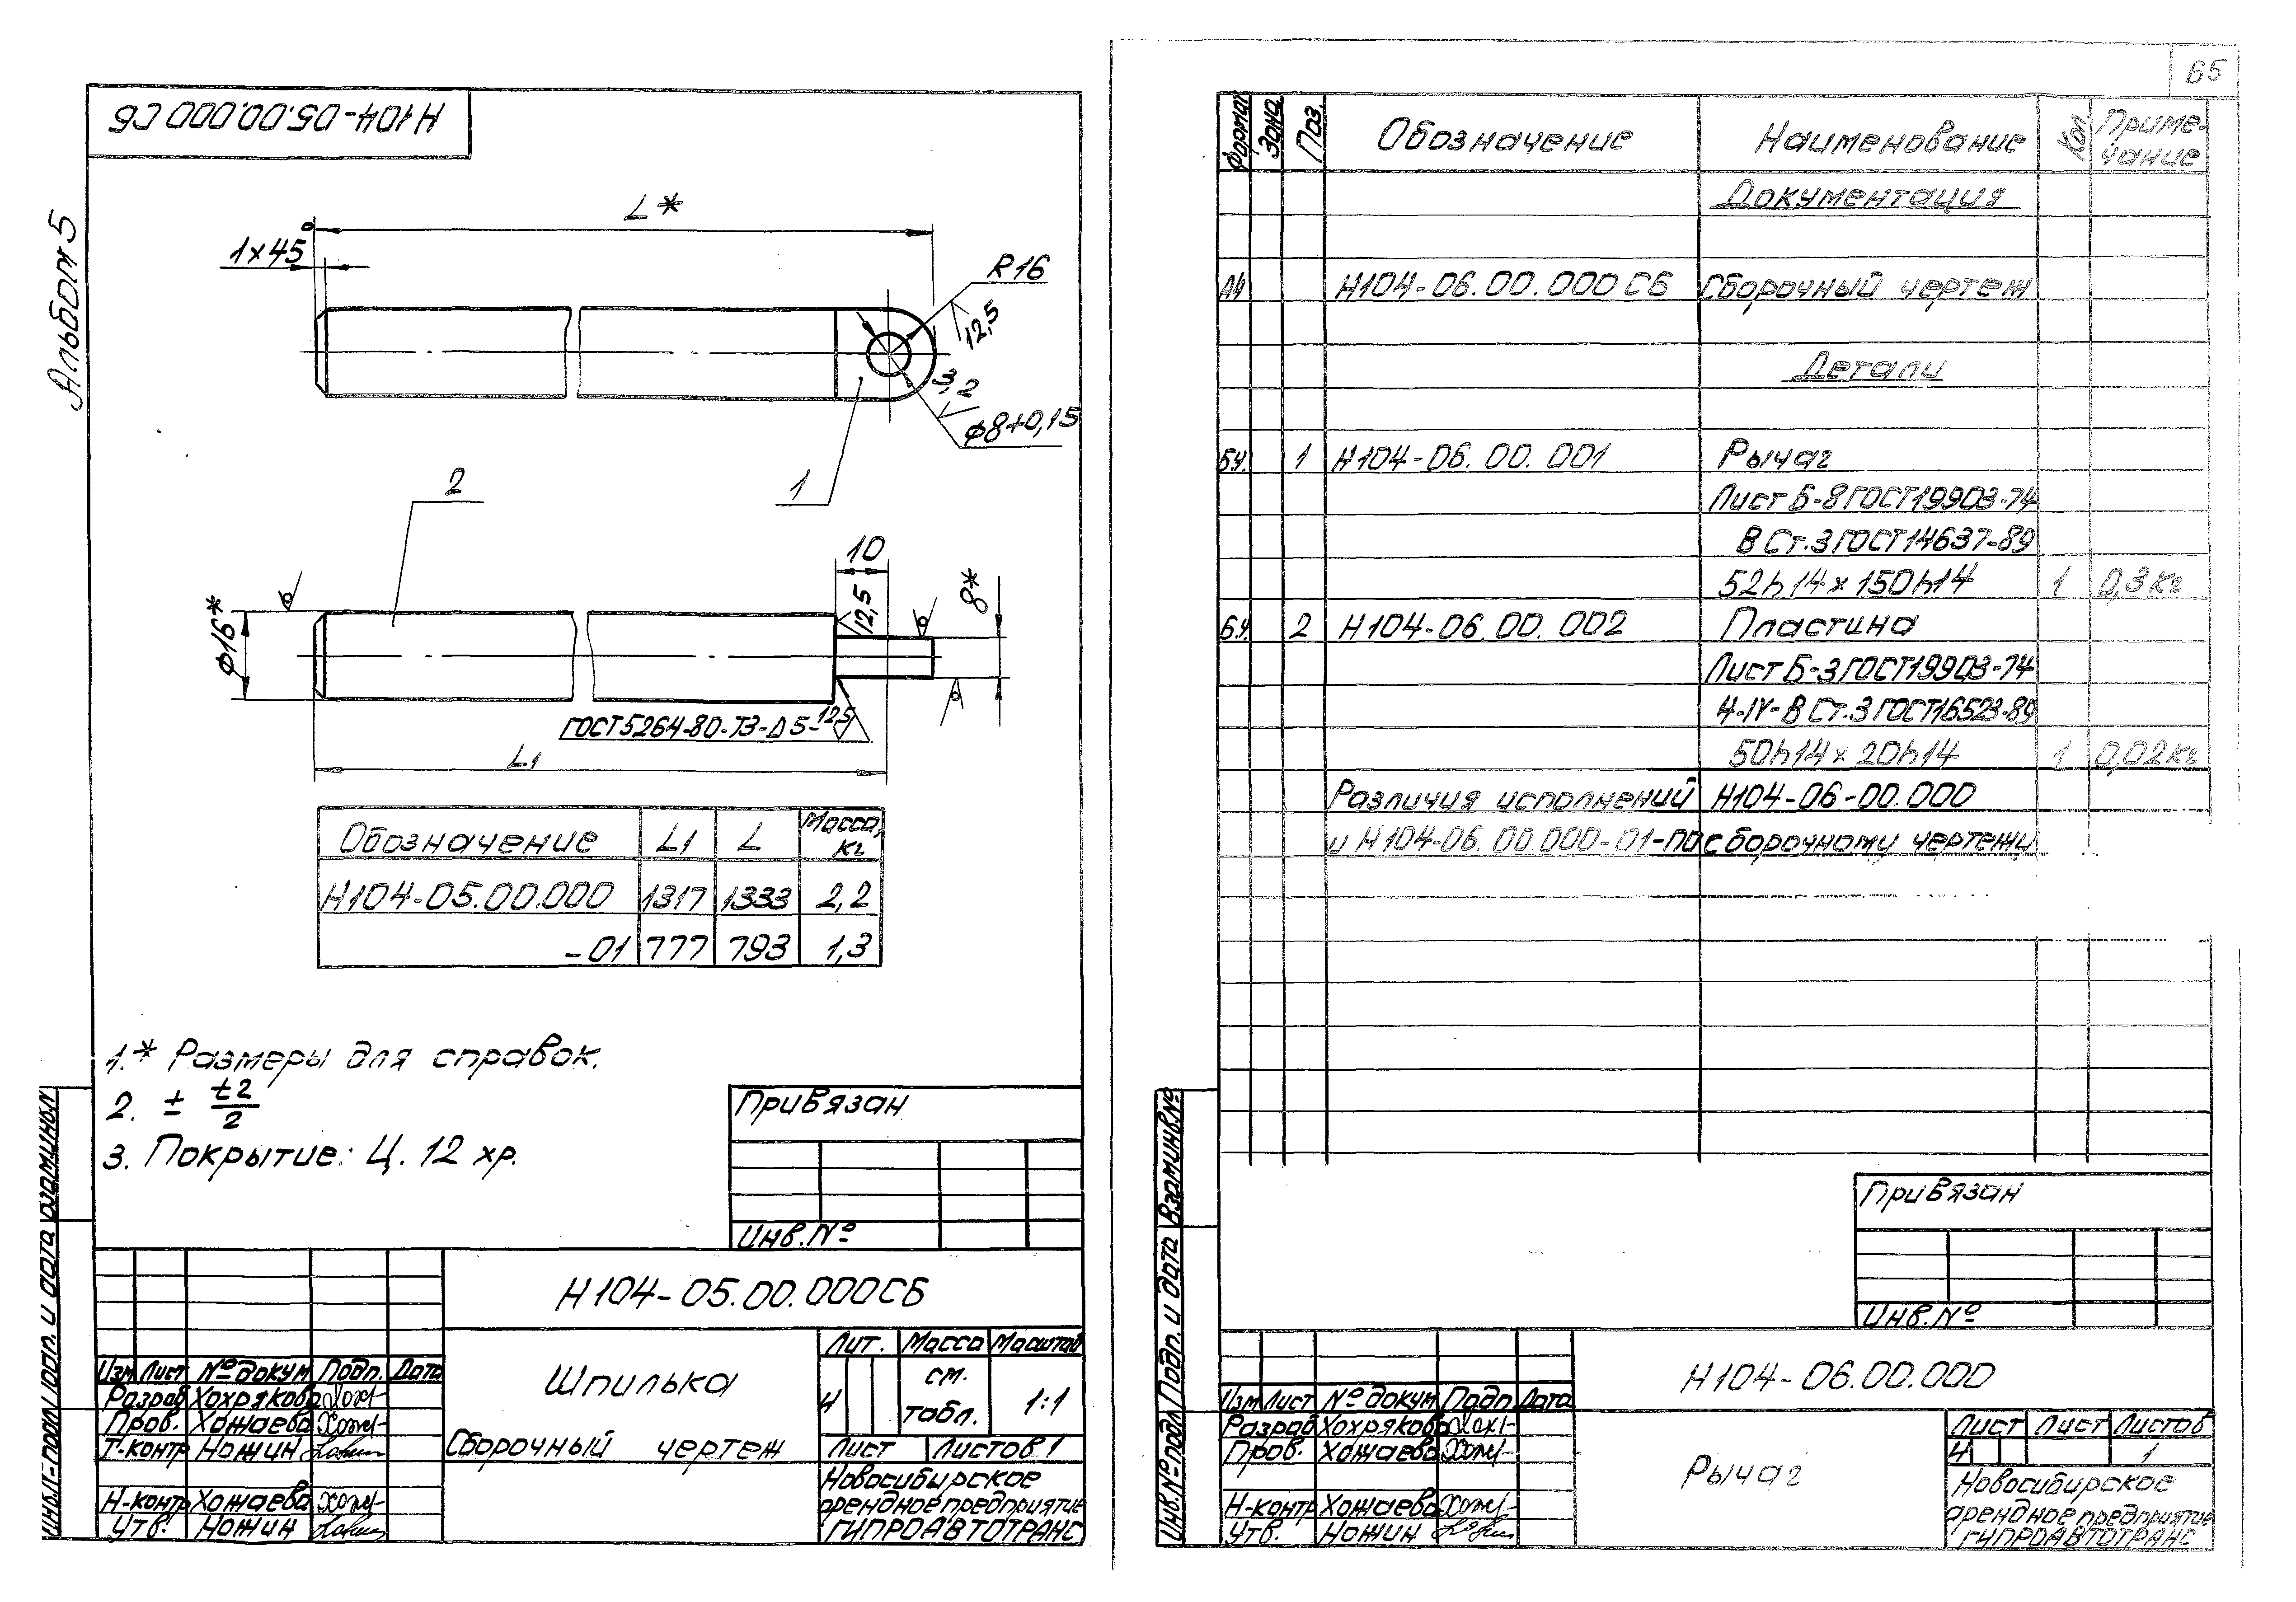 Н104-05.00.000 СБ
Альбом 5
L*
1×45°
R16
12,5
3,2
ф8+0,15
1
2
10
12,5
8*
ф16*
ГОСТ5264-80-Т3-Δ5-
12,5
L1
Обозначение L1 L Масса, кг
Н104-05.00.000 1317 1333 2,2
-01 777 793 1,3
1.* Размеры для справок.
2. ± t2/2
3. Покрытие: Ц. 12 хр.
Привязан
Инв.№
Н104-05.00.000СБ
Шпилька
Сборочный чертеж
Лит. Масса Масштаб
И см. табл. 1:1
Лист Листов 1
Новосибирское
арендное предприятие
ГИПРОАВТОТРАНС
Изм Лист № докум Подп. Дата
Разраб Хохрякова
Пров. Хожаева
Т-контр Ножин
Н-контр Хожаева
Утв. Ножин
Инв.№подл Подп. и дата Взам.инв.№
65
Формат Зона Поз. Обозначение Наименование Кол Приме-
чание
Документация
А4 Н104-06.00.000 СБ Сборочный чертеж
Детали
Б.ч. 1 Н104-06.00.001 Рычаг
Лист Б-8 ГОСТ19903-74
В Ст.3 ГОСТ14637-89
52h14×150h14 1 0,3кг
Б.ч. 2 Н104-06.00.002 Пластина
Лист Б-3 ГОСТ19903-74
4-IV-В Ст.3 ГОСТ16523-89
50h14×20h14 1 0,02кг
Различия исполнений Н104-06-00.000
и Н104-06.00.000-01-по сборочному чертежу
Привязан
Инв.№
Н104-06.00.000
Изм Лист № докум Подп Дата
Разраб Хохрякова
Пров. Хожаева
Н-контр Хожаева
Утв. Ножин
Рычаг
Лист Лист Листов
И 1
Новосибирское
арендное предприятие
ГИПРОАВТОТРАНС
Инв.№подл Подп. и дата Взам.инв№